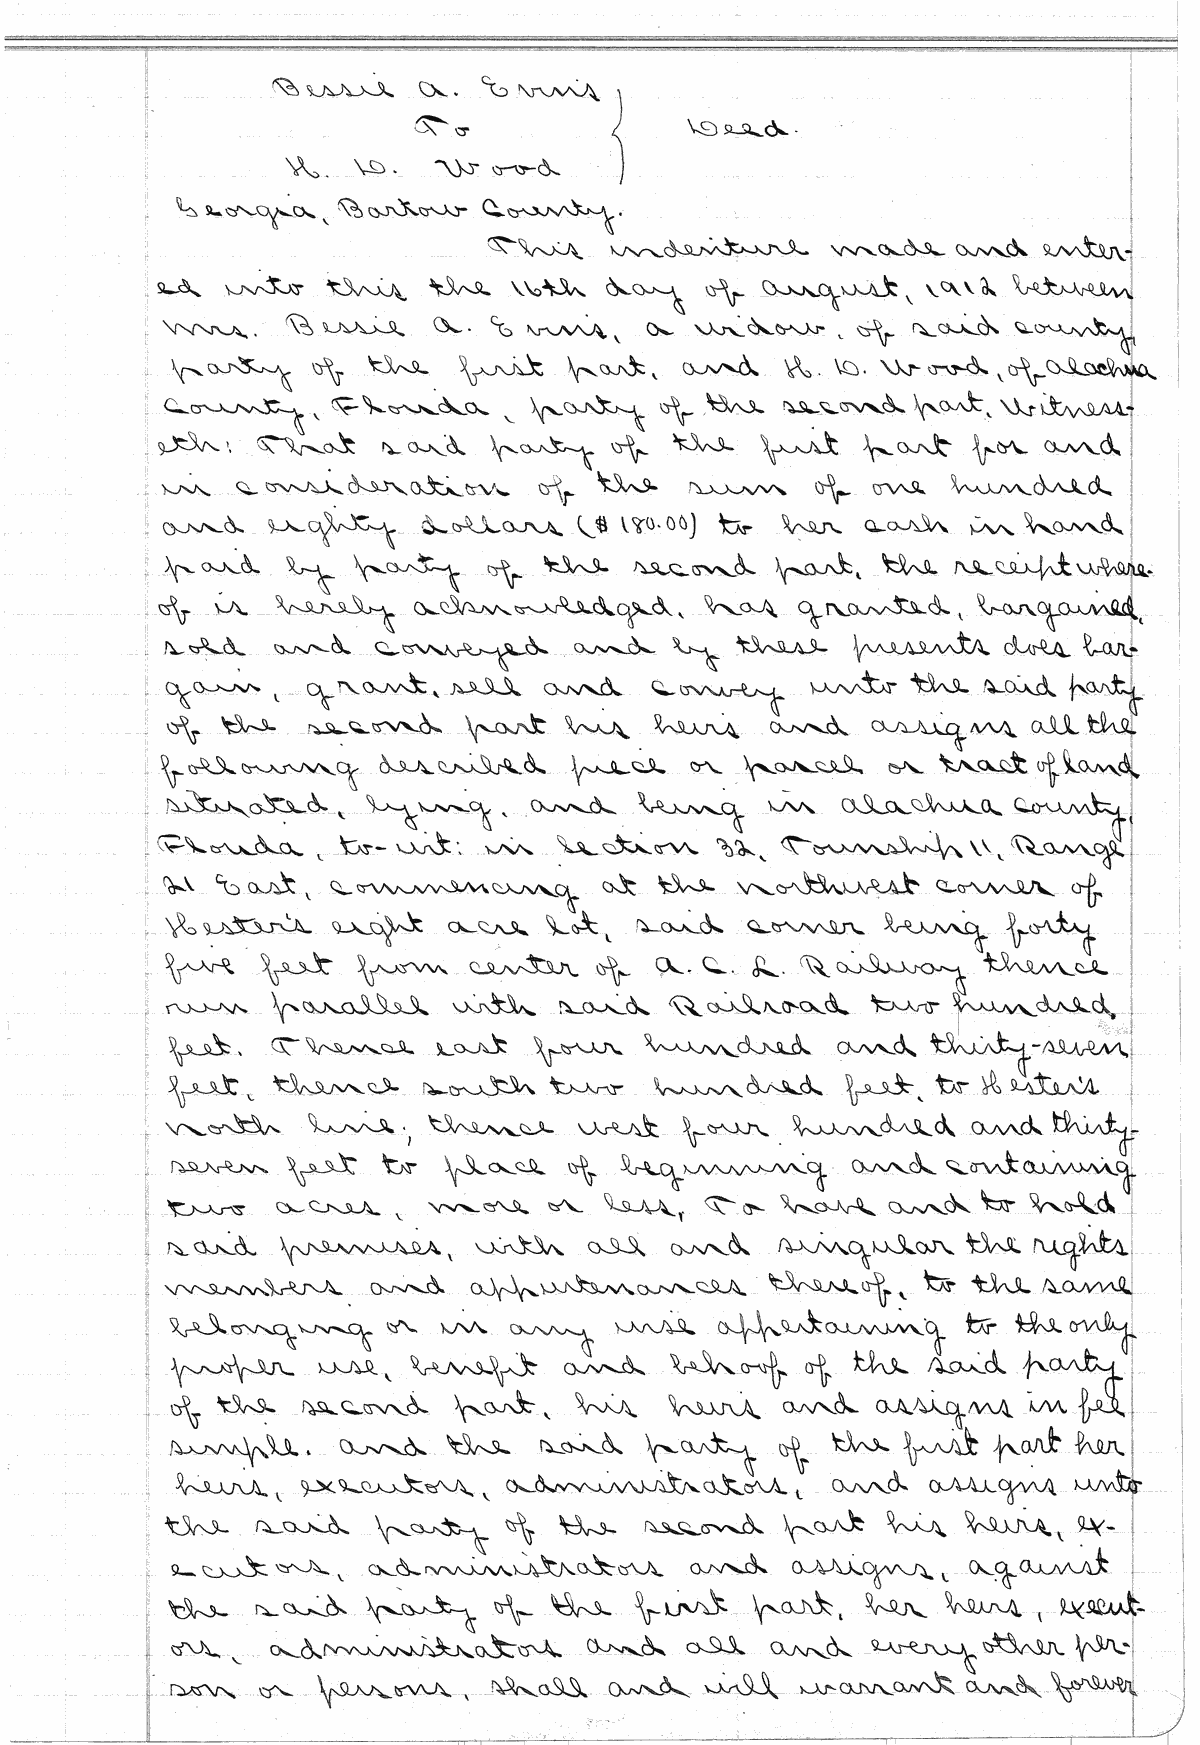 Bessie A. Evins
To
Deed.
H. D. Wood
Georgia, Bartow County.
This indenture made and enter-
ed into this the 16th day of August, 1912 between
Mrs. Bessie A. Evins, a widow, of said county,
party of the first part, and H. D. Wood, of Alachua
County, Florida, party of the second part, Witness-
eth: That said party of the first part for and
in consideration of the sum of one hundred
and eighty dollars ($180.00) to her cash in hand
paid by party of the second part, the receipt where-
of is hereby acknowledged, has granted, bargained,
sold and conveyed and by these presents does bar-
gain, grant, sell and convey unto the said party
of the second part his heirs and assigns all the
following described piece or parcel or tract of land
situated, lying, and being in Alachua County,
Florida, to-wit: in Section 32, Township 11, Range
21 East, commencing at the northwest corner of
Hester's eight acre lot, said corner being forty
five feet from center of A. C. L. Railway thence
run parallel with said Railroad two hundred
feet. Thence east four hundred and thirty-seven
feet, thence south two hundred feet, to Hester's
north line; thence west four hundred and thirty-
seven feet to place of beginning and containing
two acres, more or less, To have and to hold
said premises, with all and singular the rights
members and appurtenances thereof, to the same
belonging or in any wise appertaining to the only
proper use, benefit and behoof of the said party
of the second part, his heirs and assigns in fee
simple. And the said party of the first part her
heirs, executors, administrators, and assigns unto
the said party of the second part his heirs, ex-
ecutors, administrators and assigns, against
the said party of the first part, her heirs, execut-
ors, administrators and all and every other per-
son or persons, shall and will warrant and forever